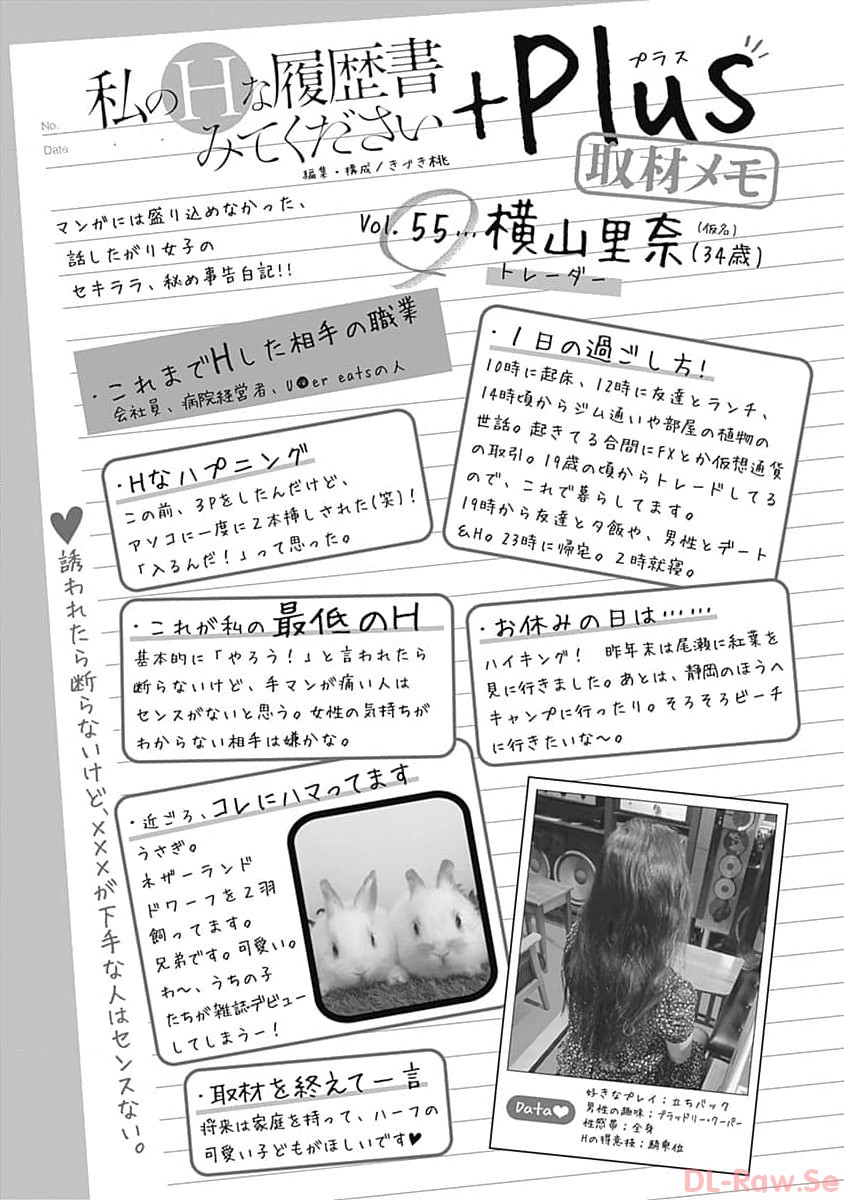 No.
Date
私のHな履歴書
みてください
+Plus
プラス
編集・構成/きづき桃
取材メモ
マンガには盛り込めなかった、
話したがり女子の
セキララ、秘め事告白記!!
Vol. 55…横山里奈(仮名)(34歳)
トレーダー
・これまでHした相手の職業
会社員、病院経営者、U●er eatsの人
・1日の過ごし方!
10時に起床、12時に友達とランチ、
14時頃からジム通いや部屋の植物の
世話。起きてる合間にFXとか仮想通貨
の取引。19歳の頃からトレードしてる
ので、これで暮らしてます。
19時から友達と夕飯や、男性とデート
&H。23時に帰宅。2時就寝。
・Hなハプニング
この前、3Pをしたんだけど、
アソコに一度に2本挿しされた(笑)!
「入るんだ!」って思った。
・これが私の最低のH
基本的に「やろう!」と言われたら
断らないけど、手マンが痛い人は
センスがないと思う。女性の気持ちが
わからない相手は嫌かな。
・お休みの日は……
ハイキング! 昨年末は尾瀬に紅葉を
見に行きました。あとは、静岡のほうへ
キャンプに行ったり。そろそろビーチ
に行きたいな〜。
♥誘われたら断らないけど、×××が下手な人はセンスない。
・近ごろ、コレにハマってます
うさぎ。
ネザーランド
ドワーフを2羽
飼ってます。
兄弟です。可愛い。
わ〜、うちの子
たちが雑誌デビュー
してしまうー!
・取材を終えて一言
将来は家庭を持って、ハーフの
可愛い子どもがほしいです♥
Data♥
好きなプレイ;立ちバック
男性の趣味;ブラッドリー・クーパー
性感帯;全身
Hの得意技;騎乗位
DL-Raw.Se